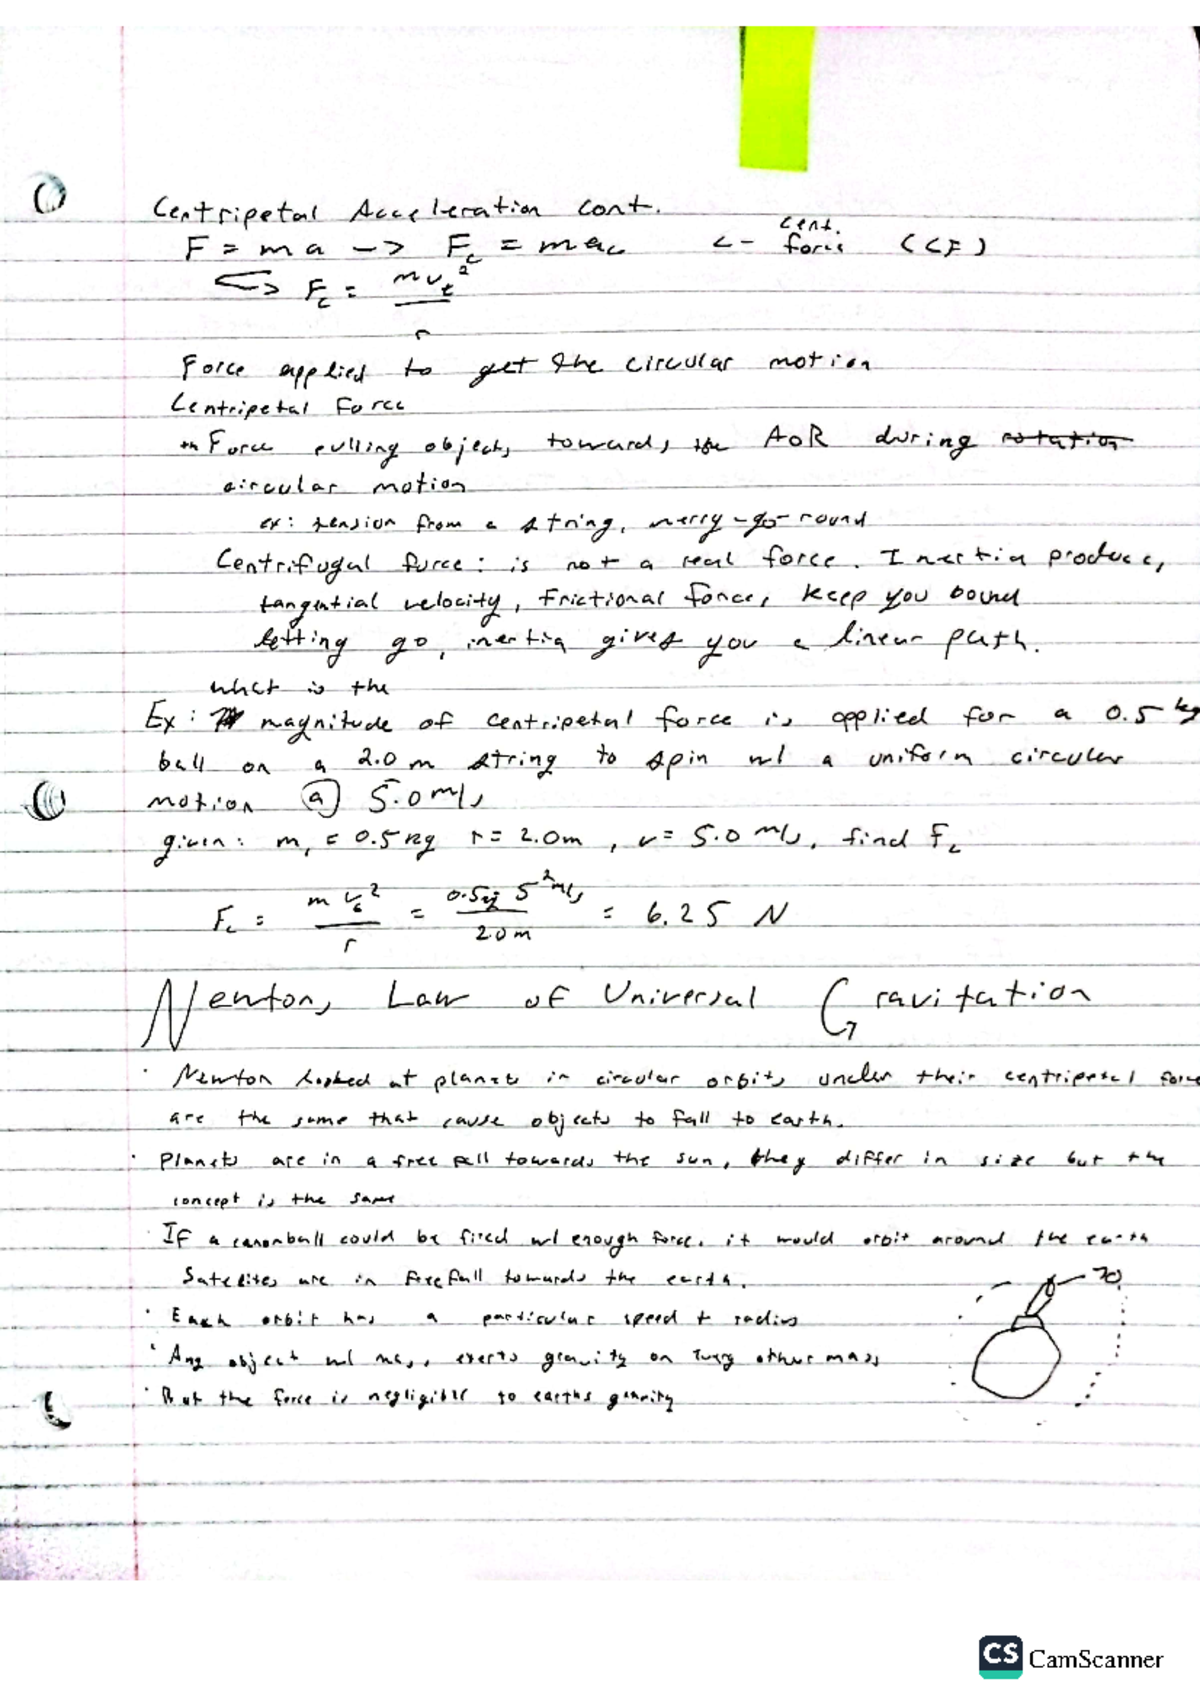 Centripetal Acceleration cont.
F = ma -> Fc = mac <- cent. force (CF)
-> Fc = mvt² / r
Force applied to get the circular motion
Centripetal Force
Force pulling objects towards the AoR during rotation
circular motion
ex: tension from a string, merry-go-round
Centrifugal force: is not a real force. Inertia produces
tangential velocity, frictional forces keep you bound
letting go, inertia gives you a linear path.
what is the
Ex: magnitude of centripetal force is applied for a 0.5 kg
ball on a 2.0 m string to spin w/ a uniform circular
motion @ 5.0 m/s
given: m, = 0.5 kg r = 2.0m, v = 5.0 m/s, find Fc
Fc = m vt² / r = 0.5kg 5² m/s / 2.0m = 6.25 N
Newtons Law of Universal Gravitation
· Newton looked at planets in circular orbits under their centripetal force
are the same that cause objects to fall to earth.
· Planets are in a free fall towards the sun, they differ in size but the
concept is the same
· If a canonball could be fired w/ enough force, it would orbit around the earth
Satelites are in freefall towards the earth.
· Each orbit has a particular speed + radius
· Any object w/ mass exerts gravity on every other mass
· But the force is negligible to earths gravity
CS CamScanner